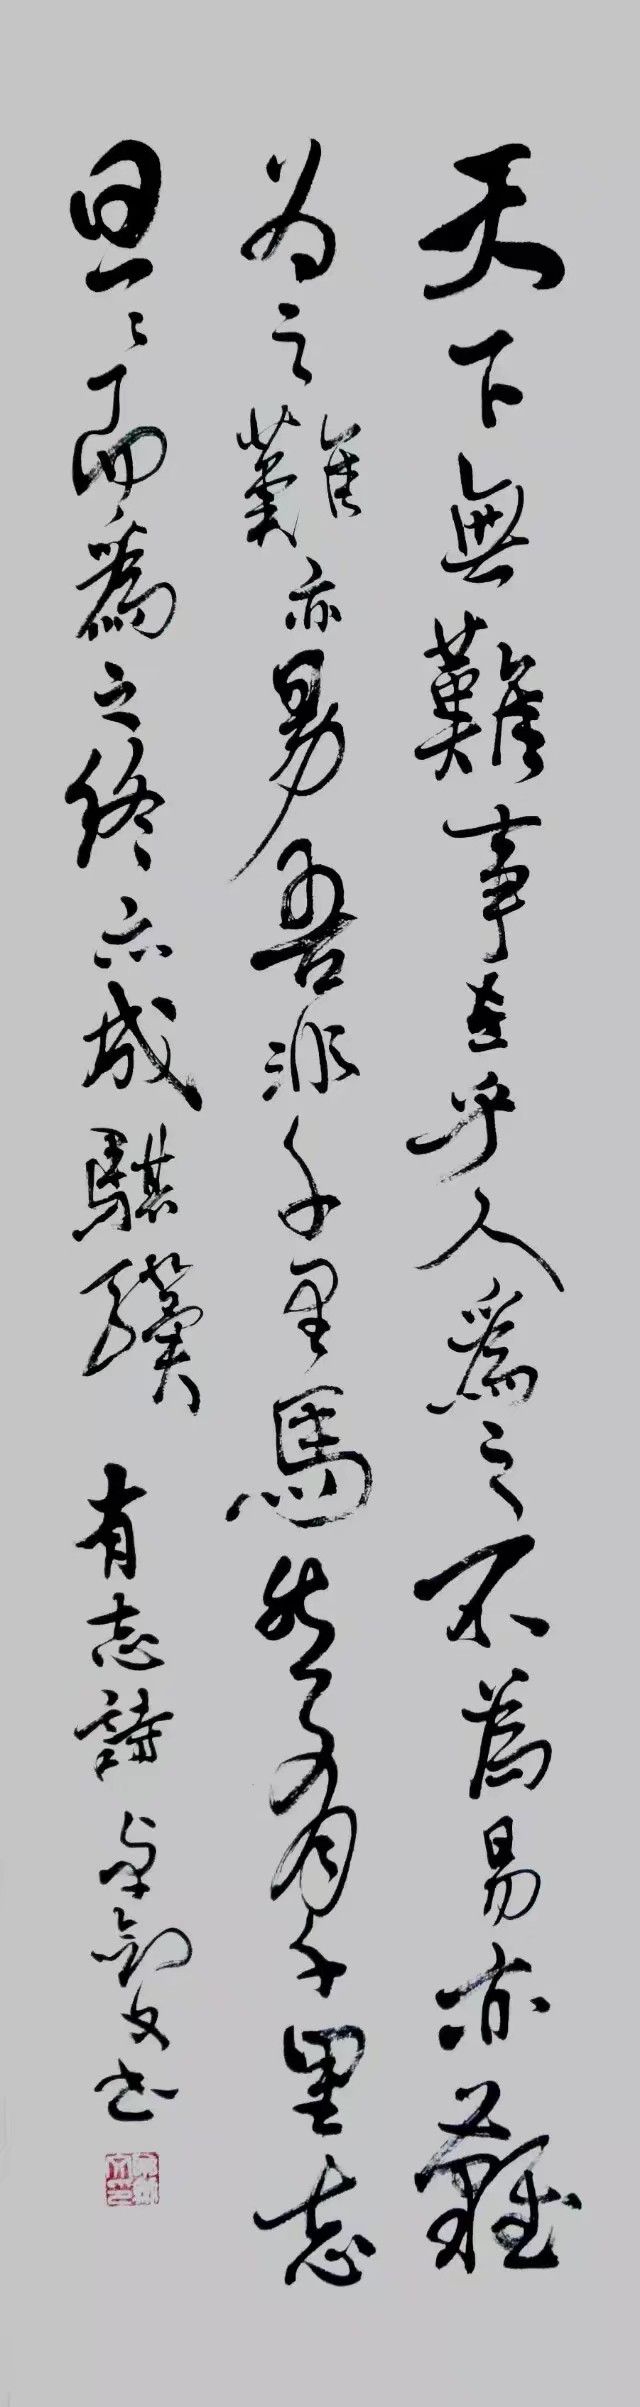 天下無難事在乎人爲之不為易亦難
为之難亦易吾非千里馬然有千里志
旦〻而爲之終亦成騏驥 有志詩 卓劍文书